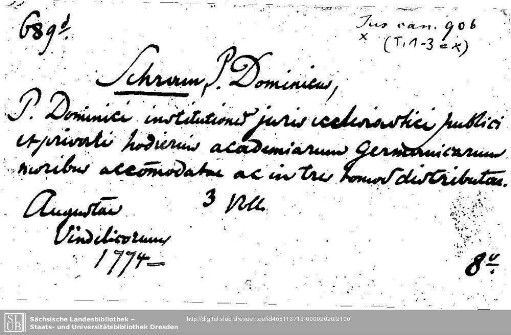 689d.
Jus can. 906
x (T. 1-3 = x)
Schram, P. Dominicus,
P. Dominici institutiones juris ecclesiastici publici
et privati hodiernis academiarum Germanicarum
moribus accomodatae ac in tres tomos distributae.
Augustae 3 Voll.
Vindelicorum
1774 = 8º.
SLUB
Sächsische Landesbibliothek –
Staats- und Universitätsbibliothek Dresden